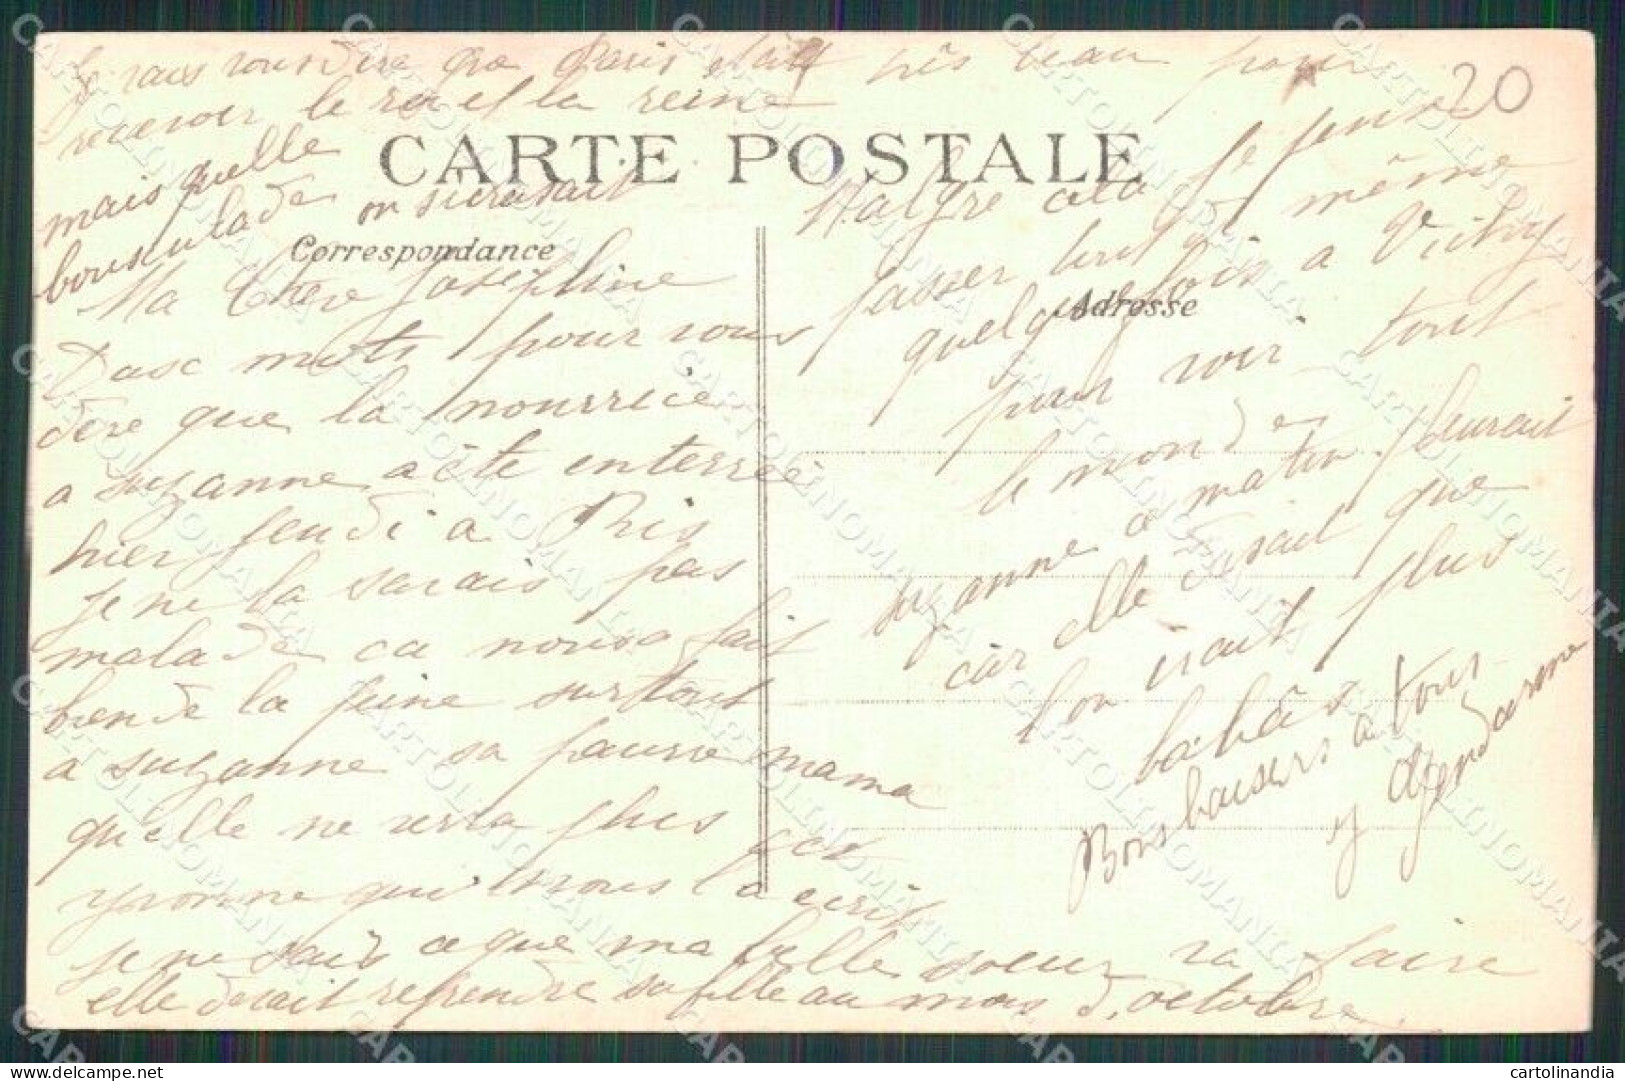 Je vais vous dire que Paris était très beau pour
recevoir le roi et la reine
mais quelle
bousculade on s'ecrasait
20
CARTE POSTALE
Correspondance
Adresse
Ma Chere Joséphine
Deux mots pour vous
dire que la nourrice
a suzanne a été enterreé
hier jeudi a Ris
je ne la savais pas
malade ca nous a fait
bien de la peine surtout
a suzanne sa pauvre mama
qu'elle ne verra plus c'est
yvonne qui nous l'a ecrit
je ne sais ce que ma belle soeur va faire
elle devait reprendre sa fille au mois d'octobre
Malgré cela je pense
passer tout de même
quelquefois a Vitry
pour voir tout
le monde
suzanne ce matin pleurait
car elle disait que
l'on irait plus
la bàs
Bons baisers a tous
y Gendarme
CARTOLINOMANIA
cartolinandia